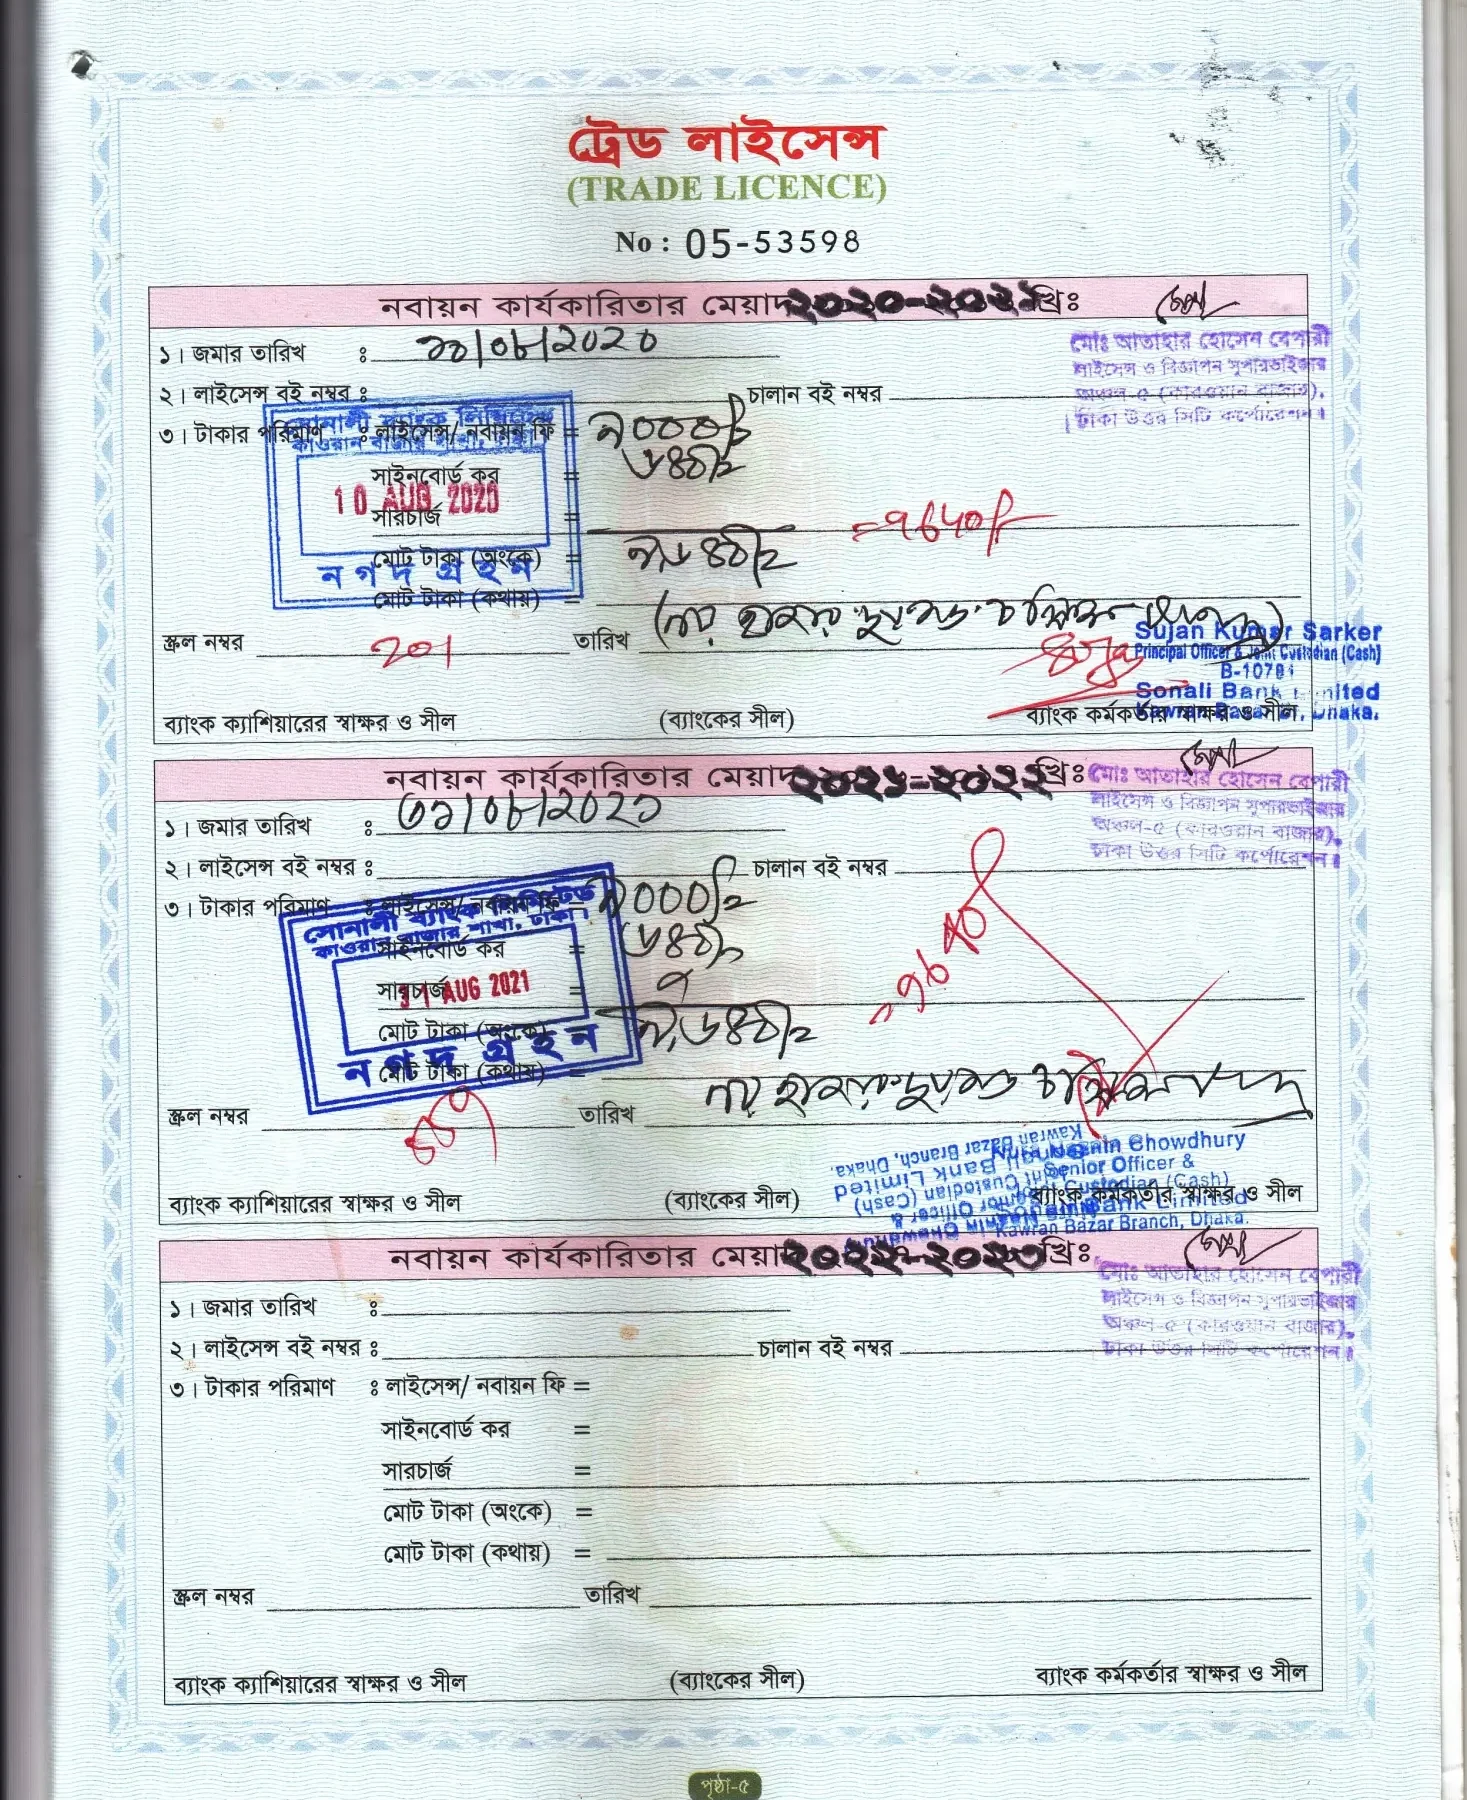 ট্রেড লাইসেন্স
(TRADE LICENCE)
No : 05-53598
নবায়ন কার্যকারিতার মেয়াদ ২০২০-২০২১ খ্রিঃ
মোঃ আতাহার হোসেন বেপারী
লাইসেন্স ও বিজ্ঞাপন সুপারভাইজার
অঞ্চল-৫ (কারওয়ান বাজার),
ঢাকা উত্তর সিটি কর্পোরেশন।
১। জমার তারিখ ঃ ১০/০৮/২০২০
২। লাইসেন্স বই নম্বর ঃ চালান বই নম্বর
৩। টাকার পরিমাণ ঃ লাইসেন্স/ নবায়ন ফি =
সোনালী ব্যাংক লিমিটেড
কাওরান বাজার শাখা, ঢাকা।
সাইনবোর্ড কর =
10 AUG 2020
সারচার্জ =
মোট টাকা (অংকে) =
নগদ গ্রহন
মোট টাকা (কথায়) =
স্ক্রল নম্বর 201 তারিখ
Sujan Kumar Sarker
Principal Officer & Joint Custodian (Cash)
B-10781
Sonali Bank Limited
Kawran Bazar Br, Dhaka.
ব্যাংক ক্যাশিয়ারের স্বাক্ষর ও সীল (ব্যাংকের সীল) ব্যাংক কর্মকর্তার স্বাক্ষর ও সীল
নবায়ন কার্যকারিতার মেয়াদ ২০২১-২০২২ খ্রিঃ
মোঃ আতাহার হোসেন বেপারী
লাইসেন্স ও বিজ্ঞাপন সুপারভাইজার
অঞ্চল-৫ (কারওয়ান বাজার),
ঢাকা উত্তর সিটি কর্পোরেশন।
১। জমার তারিখ ঃ ৩১/০৮/২০২১
২। লাইসেন্স বই নম্বর ঃ চালান বই নম্বর
৩। টাকার পরিমাণ ঃ লাইসেন্স/ নবায়ন ফি =
সোনালী ব্যাংক লিমিটেড
কাওরান বাজার শাখা, ঢাকা।
সাইনবোর্ড কর =
31 AUG 2021
সারচার্জ =
মোট টাকা (অংকে) =
নগদ গ্রহন
মোট টাকা (কথায়) =
স্ক্রল নম্বর তারিখ
Chowdhury
Senior Officer &
Joint Custodian (Cash)
Sonali Bank Limited
Kawran Bazar Branch, Dhaka.
ব্যাংক ক্যাশিয়ারের স্বাক্ষর ও সীল (ব্যাংকের সীল) ব্যাংক কর্মকর্তার স্বাক্ষর ও সীল
নবায়ন কার্যকারিতার মেয়াদ ২০২২-২০২৩ খ্রিঃ
মোঃ আতাহার হোসেন বেপারী
লাইসেন্স ও বিজ্ঞাপন সুপারভাইজার
অঞ্চল-৫ (কারওয়ান বাজার),
ঢাকা উত্তর সিটি কর্পোরেশন।
১। জমার তারিখ ঃ
২। লাইসেন্স বই নম্বর ঃ চালান বই নম্বর
৩। টাকার পরিমাণ ঃ লাইসেন্স/ নবায়ন ফি =
সাইনবোর্ড কর =
সারচার্জ =
মোট টাকা (অংকে) =
মোট টাকা (কথায়) =
স্ক্রল নম্বর তারিখ
ব্যাংক ক্যাশিয়ারের স্বাক্ষর ও সীল (ব্যাংকের সীল) ব্যাংক কর্মকর্তার স্বাক্ষর ও সীল
পৃষ্ঠা-৫